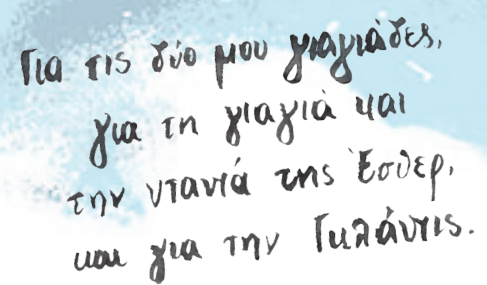 Για τις δύο μου γιαγιάδες,
για τη γιαγιά και
την νταντά της Έσθερ,
και για την Γκλάντις.